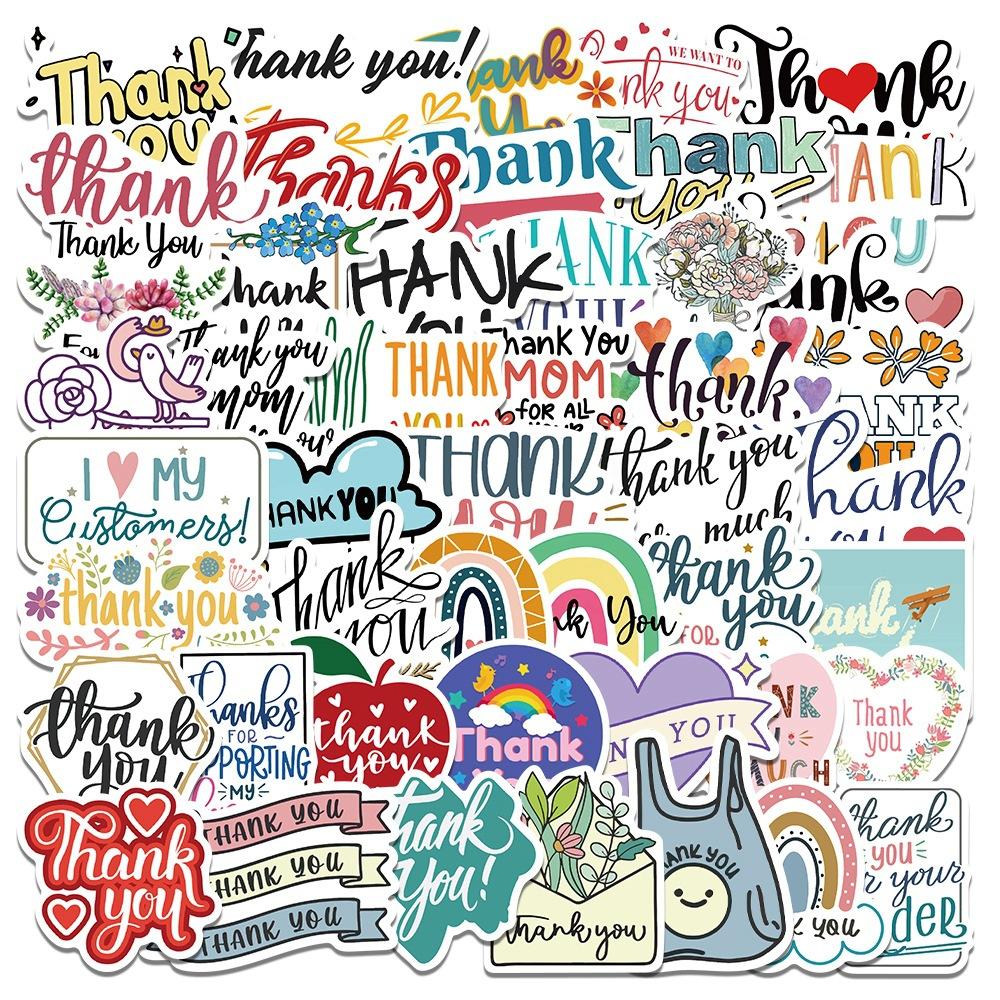 Thank
you
hank you!
ank
WE WANT TO
nk you
Thank
thank
Thanks
Thank
Thank
you
ANK
Thank You
hank
HANK
YOU
HANK
YOU
nk
Thank you
mom
THANK
YOU
hank You
MOM
FOR ALL
thank
ANK
OU
I MY
Customers!
HANK YOU
THANK
thank you
much
hank
you
thank you
hank
you
nk You
hank
you
FOR
hank
thank
you
hanks
FOR
PORTING
MY
thank
you
Thank
N YOU
NK
UCH
Thank
you
Thank
you
THANK YOU
HANK YOU
THANK YOU
hank
You!
thank you
HANK YOU
K YOU
thank
you
r your
deR